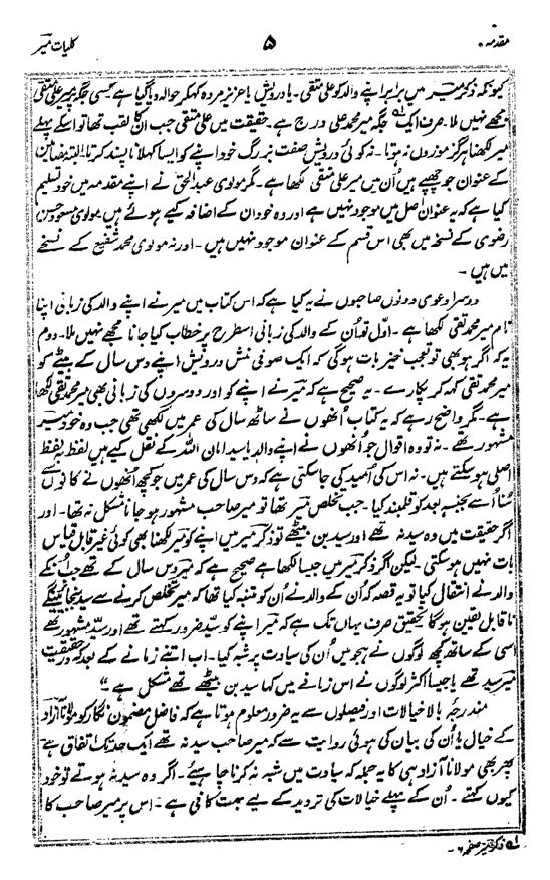 مقدمہ
۵
کلیات میر
کیونکہ ذکر میر میں برابر اپنے والد کو علی متقی ۔ یا درویش یا عزیز مردہ کہکر حوالہ دیا گیا ہے کسی جگہ میر علی متقی
مجھے نہیں ملا۔ صرف ایک جگہ میر محمد علی درج ہے۔ حقیقت میں علی متقی جب ان کا لقب تھا تو اسکے پہلے
میر لکھنا ہرگز موزوں نہ ہوتا ۔ نہ کوئی درویش صفت بزرگ خود اپنے کو ایسا کہلانا پسند کرتا۔ البتہ مضامین
کے عنوان جو چھپے ہیں اُن میں میر علی متقی لکھا ہے۔ مگر مولوی عبدالحق نے اپنے مقدمہ میں خود تسلیم
کیا ہے کہ یہ عنوان اصل میں موجود نہیں ہے اور وہ خود ان کے اضافہ کیے ہوئے ہیں مولوی مسعود حسن
رضوی کے نسخہ میں بھی اس قسم کے عنوان موجود نہیں ہیں ۔ اور نہ مولوی محمد شفیع کے نسخے
میں ہیں ۔
دوسرا دعویٰ دونوں صاحبوں نے یہ کیا ہے کہ اس کتاب میں میر نے اپنے والد کی زبانی اپنا
نام میر محمد تقی لکھا ہے ۔ اوّل تو اُن کے والد کی زبانی اسطرح پر خطاب کیا جانا مجھے نہیں ملا۔ دوم
یہ کہ اگر ہو بھی تو تعجب خیز بات ہوگی کہ ایک صوفی منش درویش اپنے دس سال کے بیٹے کو
میر محمد تقی کہہ کر پکارے ۔ یہ صحیح ہے کہ میر نے اپنے کو اور دوسروں کی زبانی بھی میر محمد تقی لکھا
ہے۔ مگر واضح رہے کہ یہ کتاب اُنھوں نے ساٹھ سال کی عمر میں لکھی تھی جب وہ خود میر
مشہور تھے ۔ نہ تو وہ اقوال جو اُنھوں نے اپنے والد یا سید امان اللہ کے نقل کیے ہیں لفظ بلفظ
اصلی ہو سکتے ہیں۔ نہ اس کی اُمید کی جاسکتی ہے کہ دس سال کی عمر میں جو کچھ اُنھوں نے کانوں سے
سُنا اُسے بجنسہ بعد کو قلمبند کیا۔ جب تخلص میر تھا تو میر صاحب مشہور ہو جانا مشکل نہ تھا۔ اور
اگر حقیقت میں وہ سید نہ تھے اور سید بن بیٹھے تو ذکر میر میں اپنے کو میر لکھنا بھی کوئی غیر قابل قیاس
بات نہیں ہو سکتی۔ لیکن اگر ذکر میر میں جیسا لکھا ہے صحیح ہے کہ میر دس سال کے تھے جب اُنکے
والد نے انتقال کیا تو یہ قصہ کہ اُن کے والد نے اُن کو متنبہ کیا تھا کہ میر تخلص کرنے سے سید
ناقابل یقین ہوگا تحقیق صرف یہاں تک ہے کہ میر اپنے کو سید ضرور کہتے تھے اور سید مشہور تھے
اسی کے ساتھ کچھ لوگوں نے ہجو میں اُن کی سیادت پر شبہ کیا۔ اب اتنے زمانے کے بعد کہ در حقیقت
میر سید تھے یا جیسا اکثر لوگوں نے اس زمانے میں کہا سید بن بیٹھے تھے مشکل ہے "
مندرجہ بالا خیالات اور فیصلوں سے یہ ضرور معلوم ہوتا ہے کہ فاضل مضمون نگار کو مولانا آزاد
کے خیال یا اُن کی بیان کی ہوئی روایت سے کہ میر صاحب سید نہ تھے ایک حد تک اتفاق ہے
پھر بھی مولانا آزاد ہی کا یہ جملہ کہ سیادت میں شبہ نہ کرنا چاہیے۔ اگر وہ سید نہ ہوتے تو خود
کیوں کہتے ۔ اُن کے پہلے خیالات کی تردید کے لیے بہت کافی ہے ۔ اس پر میر صاحب کا
ذکر میر صفحہ